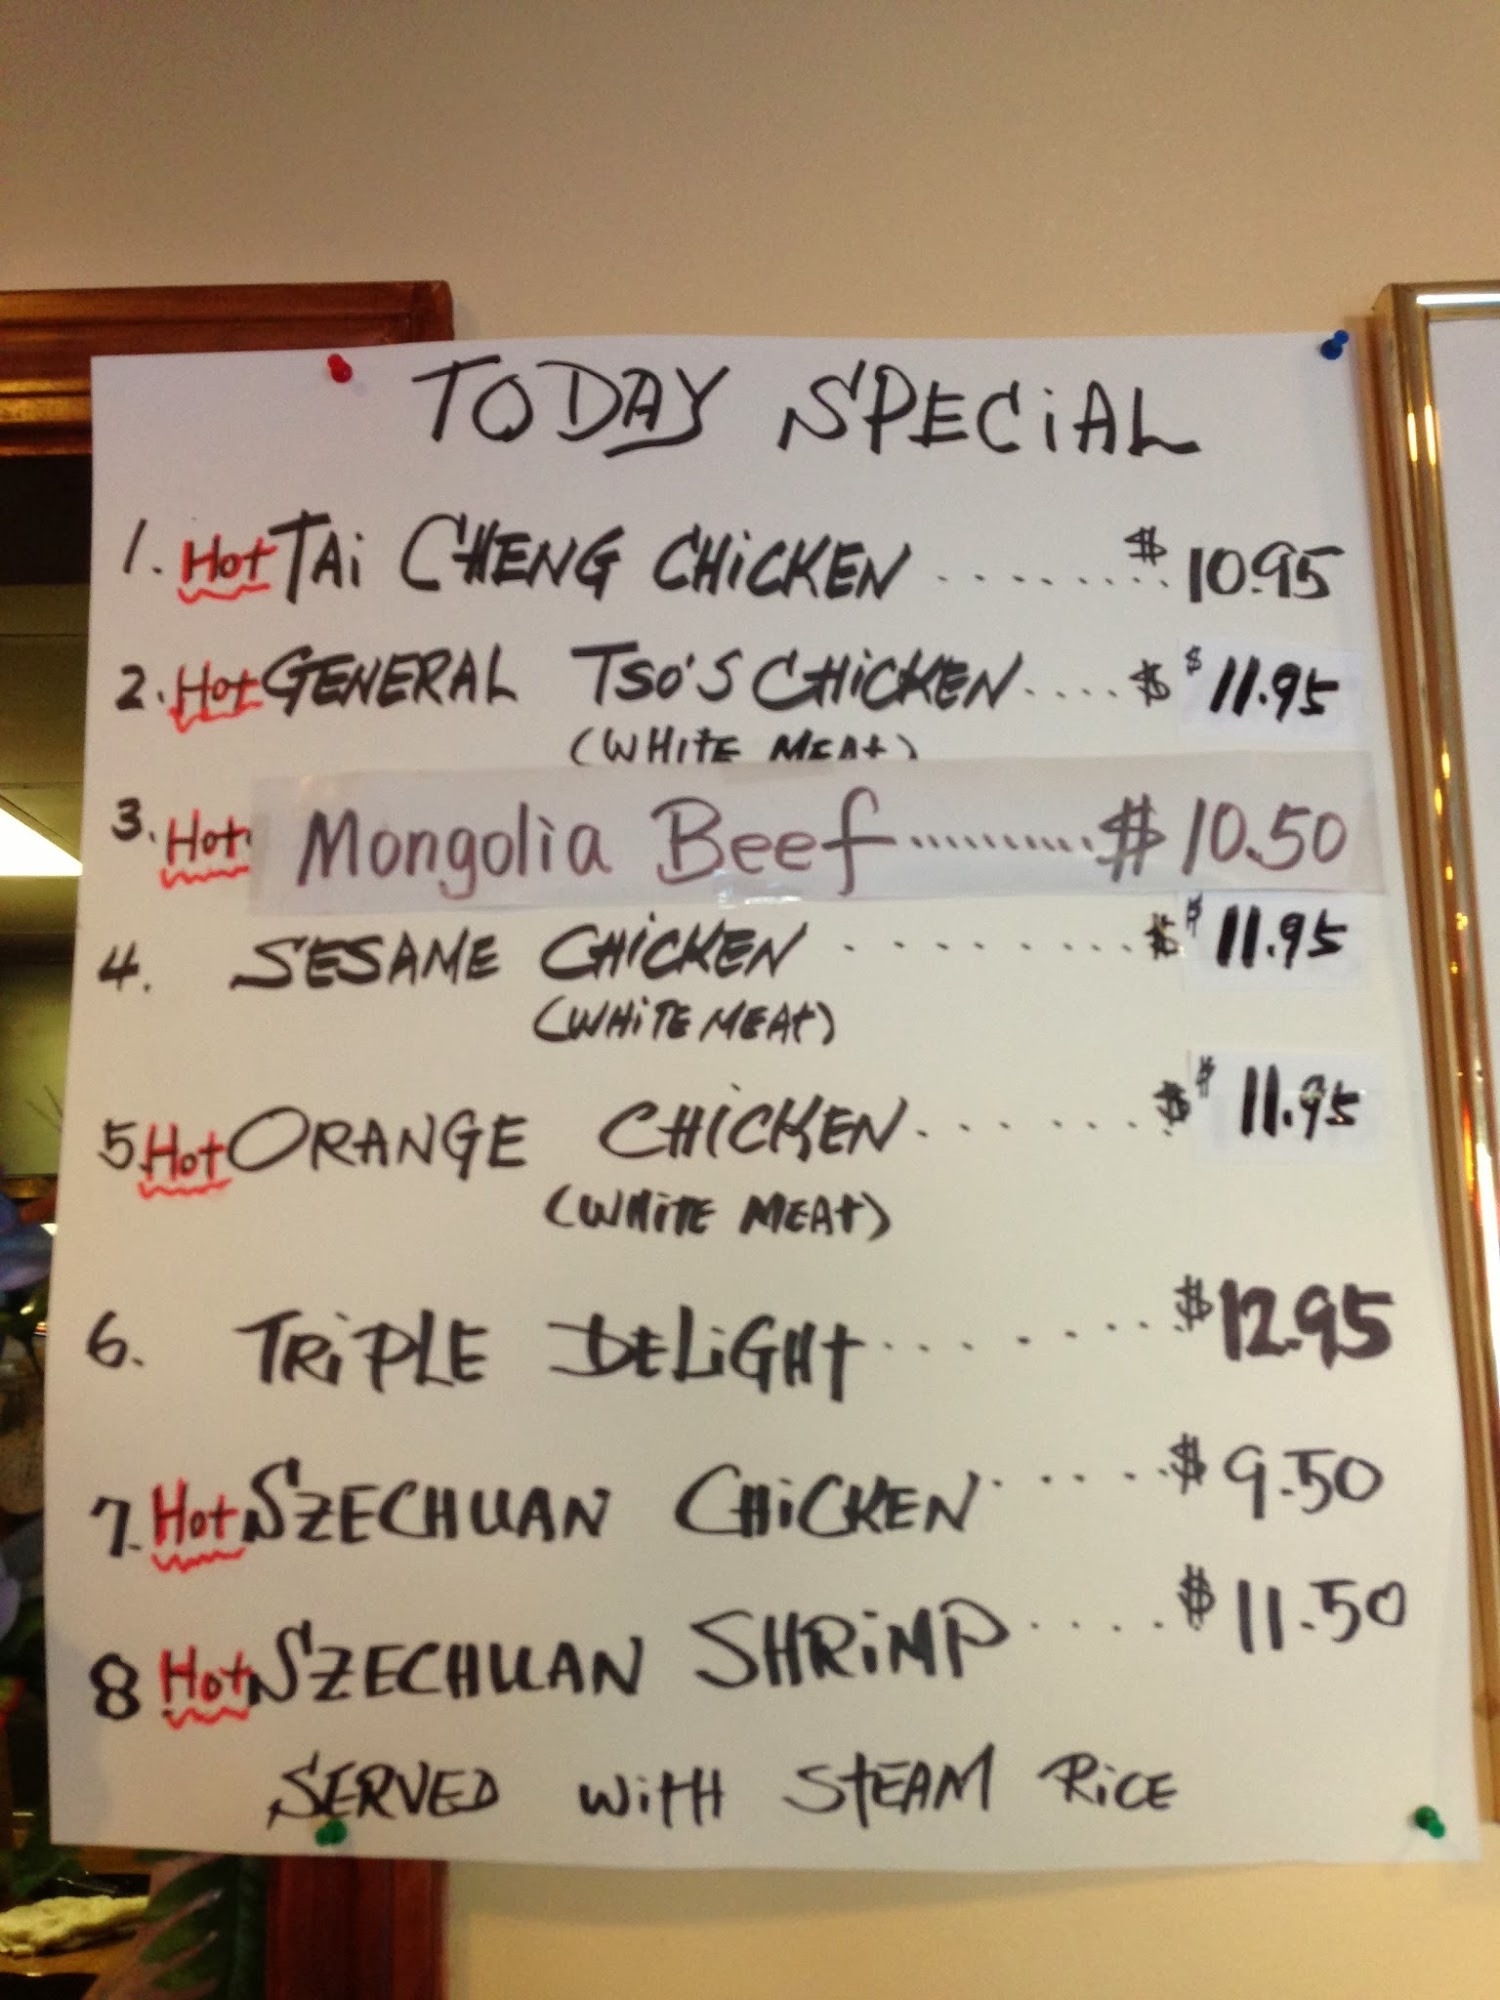 TODAY SPECiAL
1. Hot TAi CHENG CHiCKEN ........ $10.95
2. Hot GENERAL TSO'S CHiCKEN .... $ $11.95
(WHITE MEAt)
3. Hot Mongolia Beef .......... $10.50
4. SESAME CHiCKEN ........ $ $11.95
(WHiTE MEAt)
5. Hot ORANGE CHiCKEN ...... $ $11.95
(WHiTE MEAt)
6. TRiPLE DELiGHt ....... $12.95
7. Hot SZECHUAN CHiCKEN ..... $9.50
8 Hot SZECHUAN SHRiMP .... $11.50
SERVED WitH StEAM RiCE